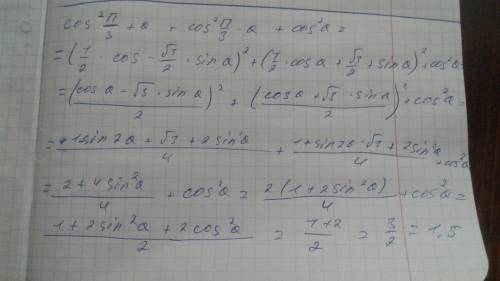 cos² π/3 + a + cos² π/3 - a + cos²a =
= (1/2 · cos - √3/2 · sin a)² + (1/2 · cos a + √3/2 + sin a)² + cos²a =
= (cos a - √3 · sin a / 2)² + (cos a + √3 · sin a / 2)² + cos²a =
= 1 sin 2a + √3 + 2 sin²a / 4 + 1 + sin 2a · √3 + 2 sin²a / 4 + cos²a
= 2 + 4 sin²a / 4 + cos²a = 2 (1 + 2 sin²a) / 4 + cos²a =
1 + 2 sin²a + 2 cos²a / 2 = 1+2 / 2 = 3/2 = 1,5